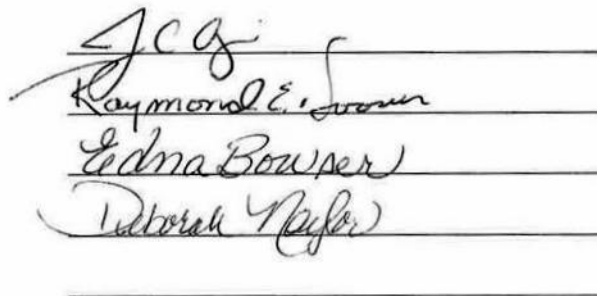 J C
Raymond E.
Edna Bowser
Deborah Naylor